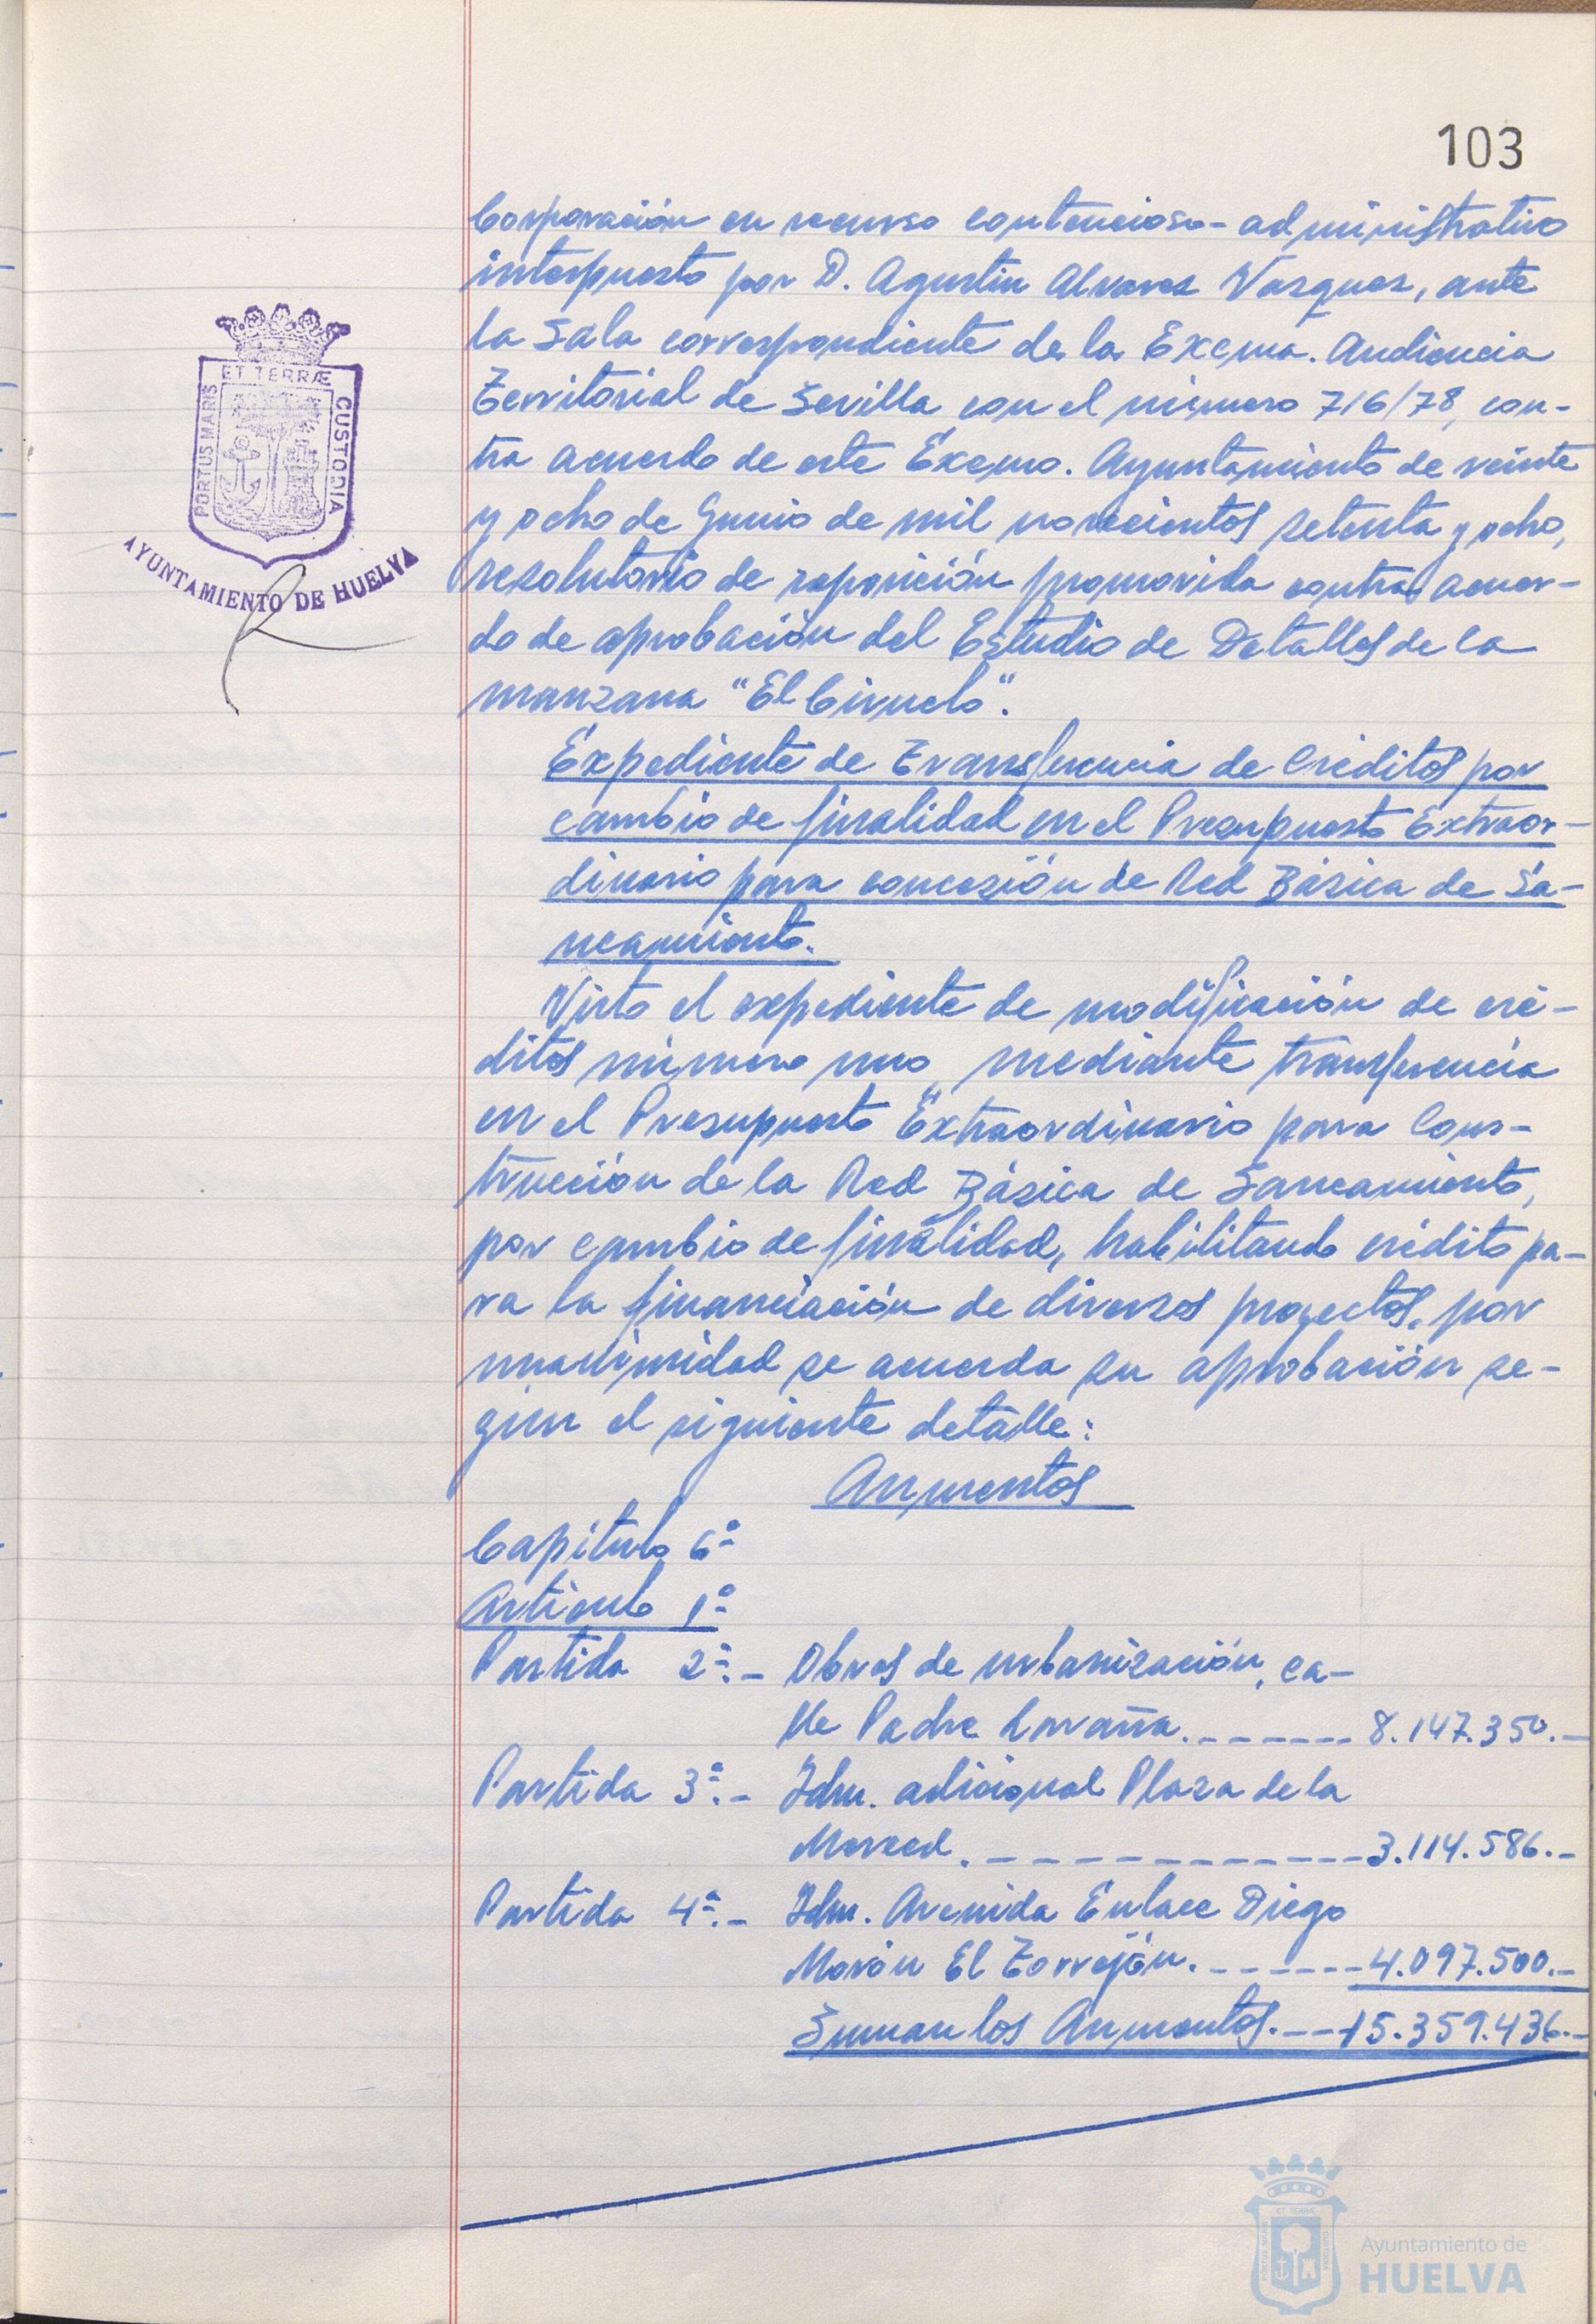 103
Corporación en recurso contencioso-administrativo
interpuesto por D. Agustin Alvarez Vazquez, ante
la Sala correspondiente de la Excma. Audiencia
Territorial de Sevilla con el número 716/78, con-
tra acuerdo de este Excmo. Ayuntamiento de veinte
y ocho de Junio de mil novecientos setenta y ocho,
resolutorio de reposición promovida contra acuer-
do de aprobación del Estudio de Detalles de la
manzana "El Ciruelo".
Expediente de Transferencia de Créditos por
cambio de finalidad en el Presupuesto Extraor-
dinario para concesión de Red Básica de Sa-
neamiento.
Visto el expediente de modificación de cré-
ditos número uno mediante transferencia
en el Presupuesto Extraordinario para Cons-
trucción de la Red Básica de Saneamiento,
por cambio de finalidad, habilitando crédito pa-
ra la financiación de diversos proyectos, por
unanimidad se acuerda su aprobación se-
gún el siguiente detalle:
Aumentos
Capítulo 6º
Artículo 1º
Partida 2ª.- Obras de urbanización, ca-
lle Padre Laraña. ------- 8.147.350.-
Partida 3ª.- Idm. adicional Plaza de la
Merced. ------------ 3.114.586.-
Partida 4ª.- Idm. Avenida Enlace Diego
Morón El Torrejón. ------ 4.097.500.-
Suman los Aumentos. --- 15.359.436.-
PORTUS MARIS
ET TERRÆ
CUSTODIA
AYUNTAMIENTO DE HUELVA
Ayuntamiento de
HUELVA